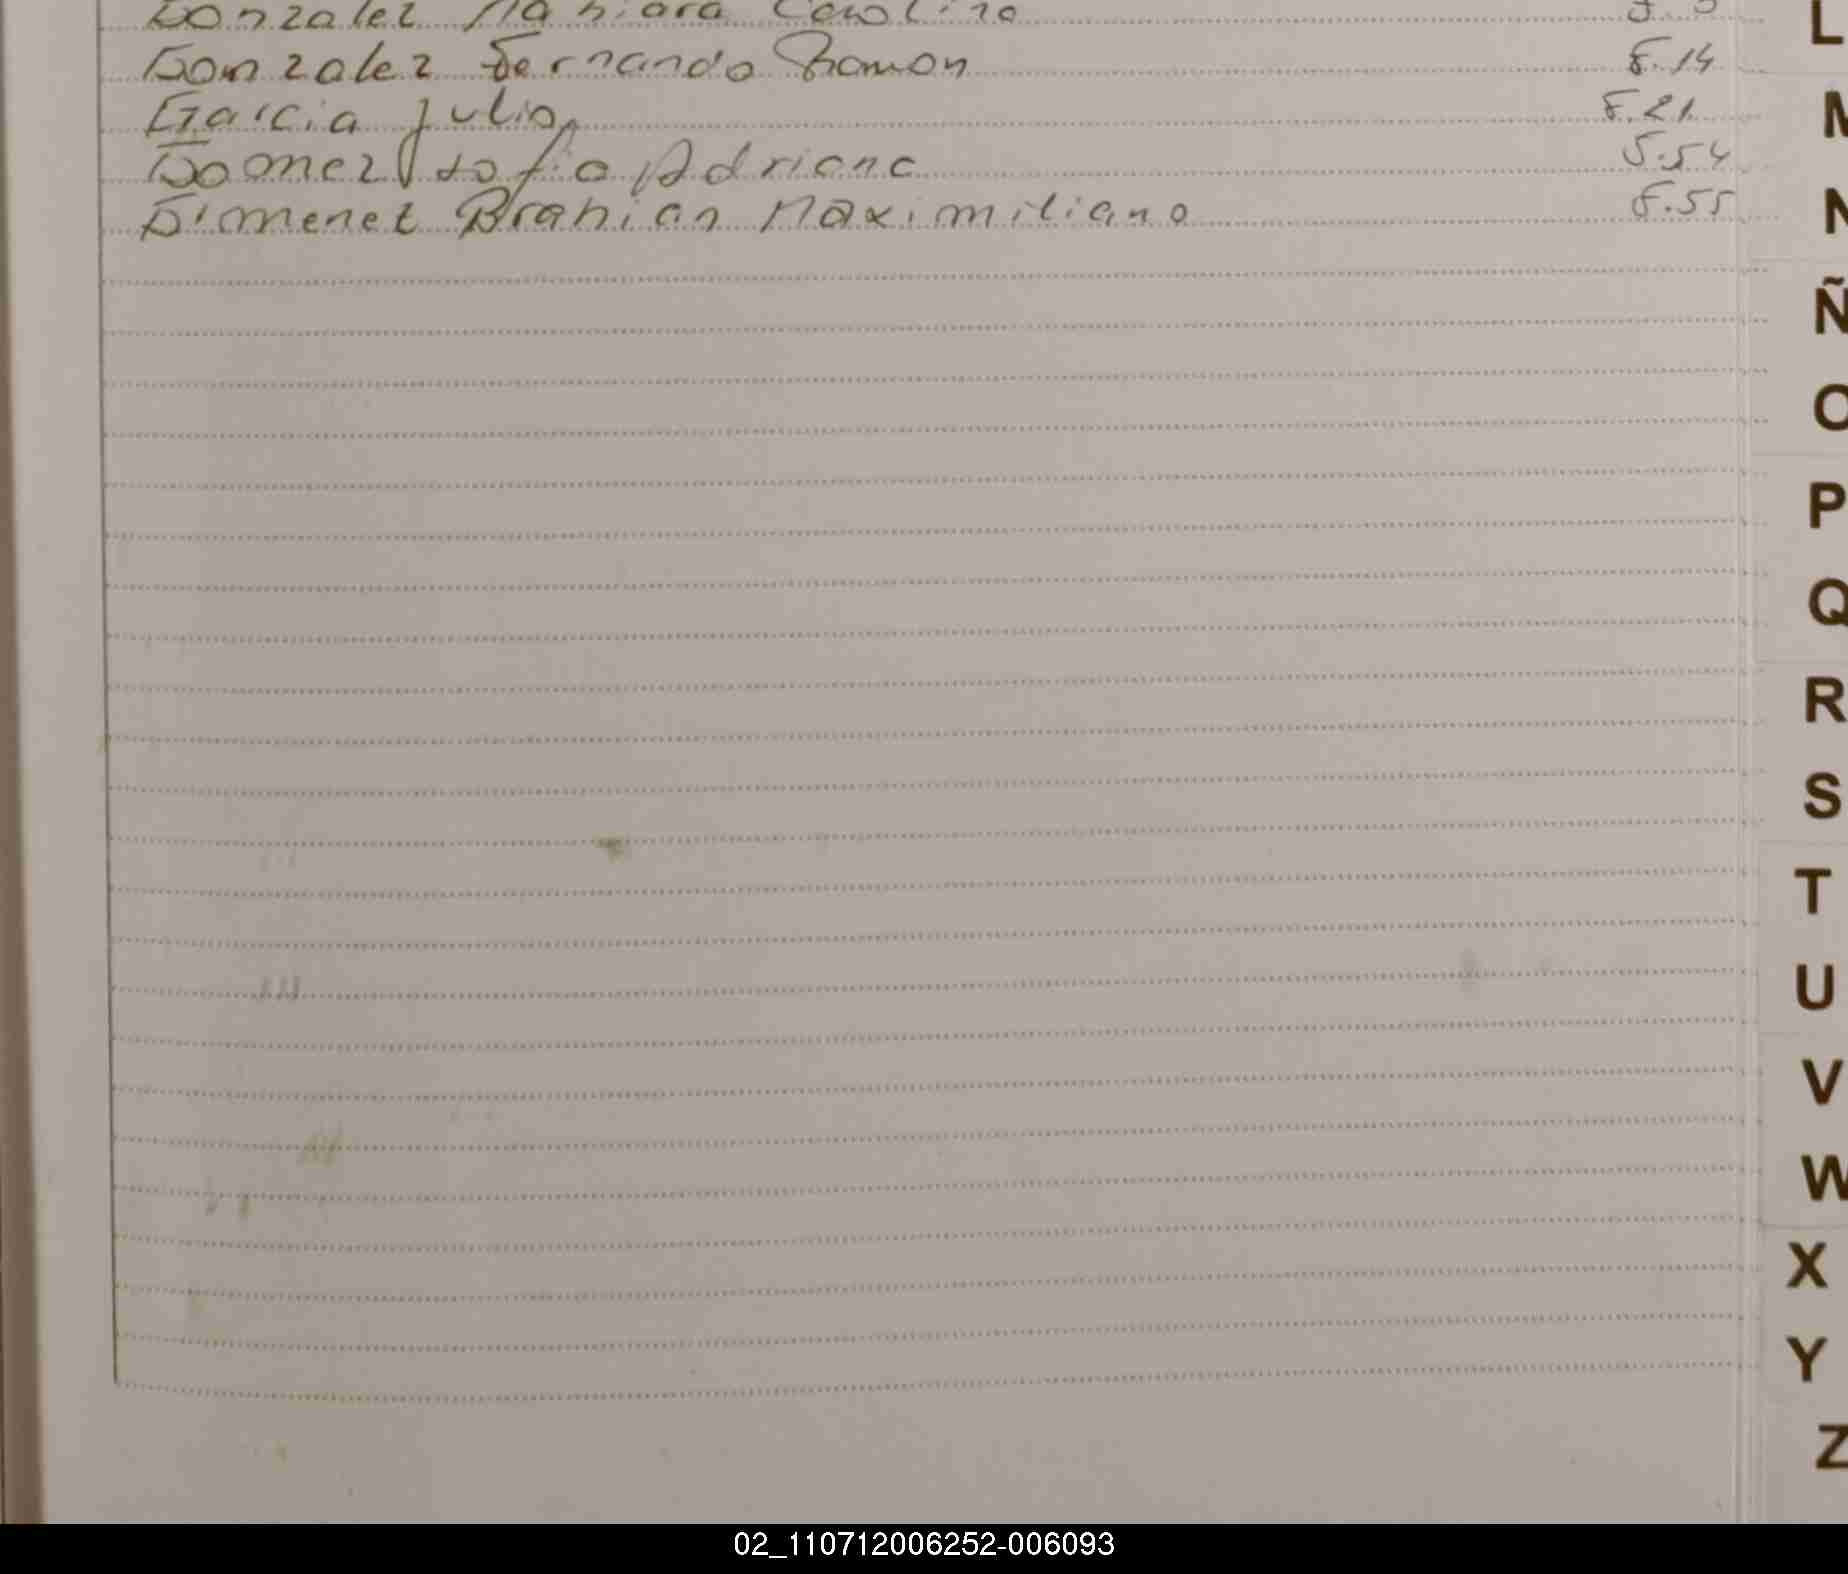 Gonzalez Nahiara Carolina
Gonzalez Fernando Ramon F.14
Garcia Julio F.21
Gomez Sofia Adriana F.54
Gimenez Brahian Maximiliano F.55
L
M
N
Ñ
O
P
Q
R
S
T
U
V
W
X
Y
Z
02_110712006252-006093